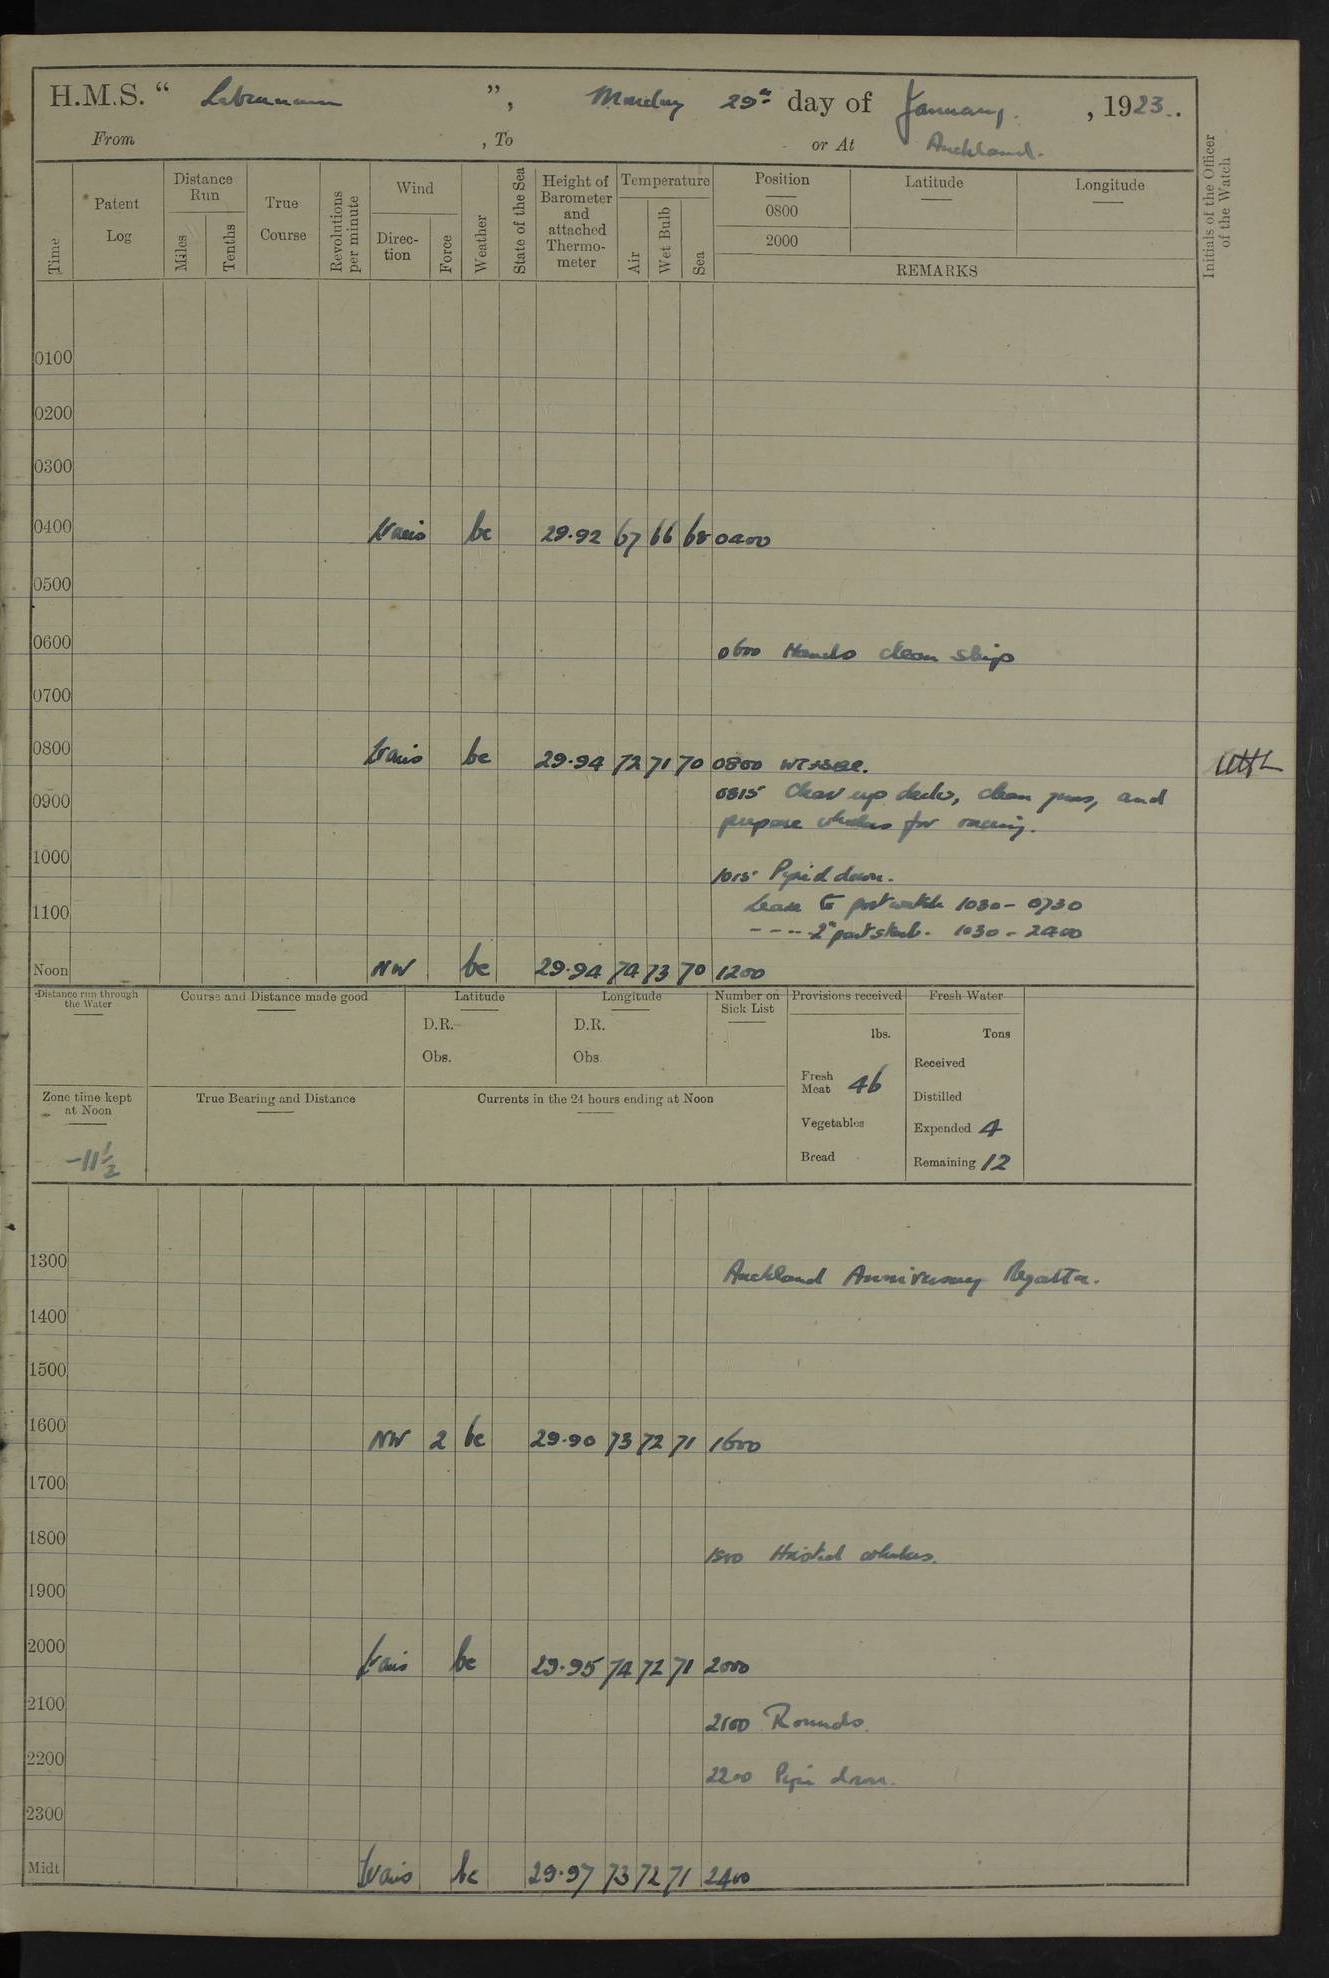 H.M.S. “ Laburnum ”, Monday 29th day of January, 1923.
From , To or At Auckland.
Time
Patent Log
Distance Run
Miles
Tenths
True Course
Revolutions per minute
Wind
Direc-tion
Force
Weather
State of the Sea
Height of Barometer and attached Thermo-meter
Temperature
Air
Wet Bulb
Sea
Position
0800
2000
Latitude
Longitude
REMARKS
Initials of the Officer of the Watch
0100
0200
0300
0400 Vars bc 29.92 67 66 68 0400
0500
0600 0600 Hands clean ship
0700
0800 Vars bc 29.94 72 71 70 0800
0900 0815 Clear up decks, clean guns, and
prepare whalers for racing.
1000 1015 Pipe'd down.
Leave to port watch 1030 - 0730
1100 - - - - 2nd part starb. 1030 - 2400
Noon NW bc 29.94 74 73 70 1200
Distance run through the Water
Course and Distance made good
Latitude
D.R.
Obs.
Longitude
D.R.
Obs.
Number on Sick List
Provisions received
lbs.
Fresh Meat 46
Vegetables
Bread
Fresh Water
Tons
Received
Distilled
Expended 4
Remaining 12
Zone time kept at Noon
-11½
True Bearing and Distance
Currents in the 24 hours ending at Noon
1300 Auckland Anniversary Regatta.
1400
1500
1600 NW 2 bc 29.90 73 72 71 1600
1700
1800 Hoisted whalers.
1900
2000 Vars bc 29.95 74 72 71 2000
2100 2100 Rounds.
2200 2200 Pipe down.
2300
Midt Vars bc 29.97 73 72 71 2400